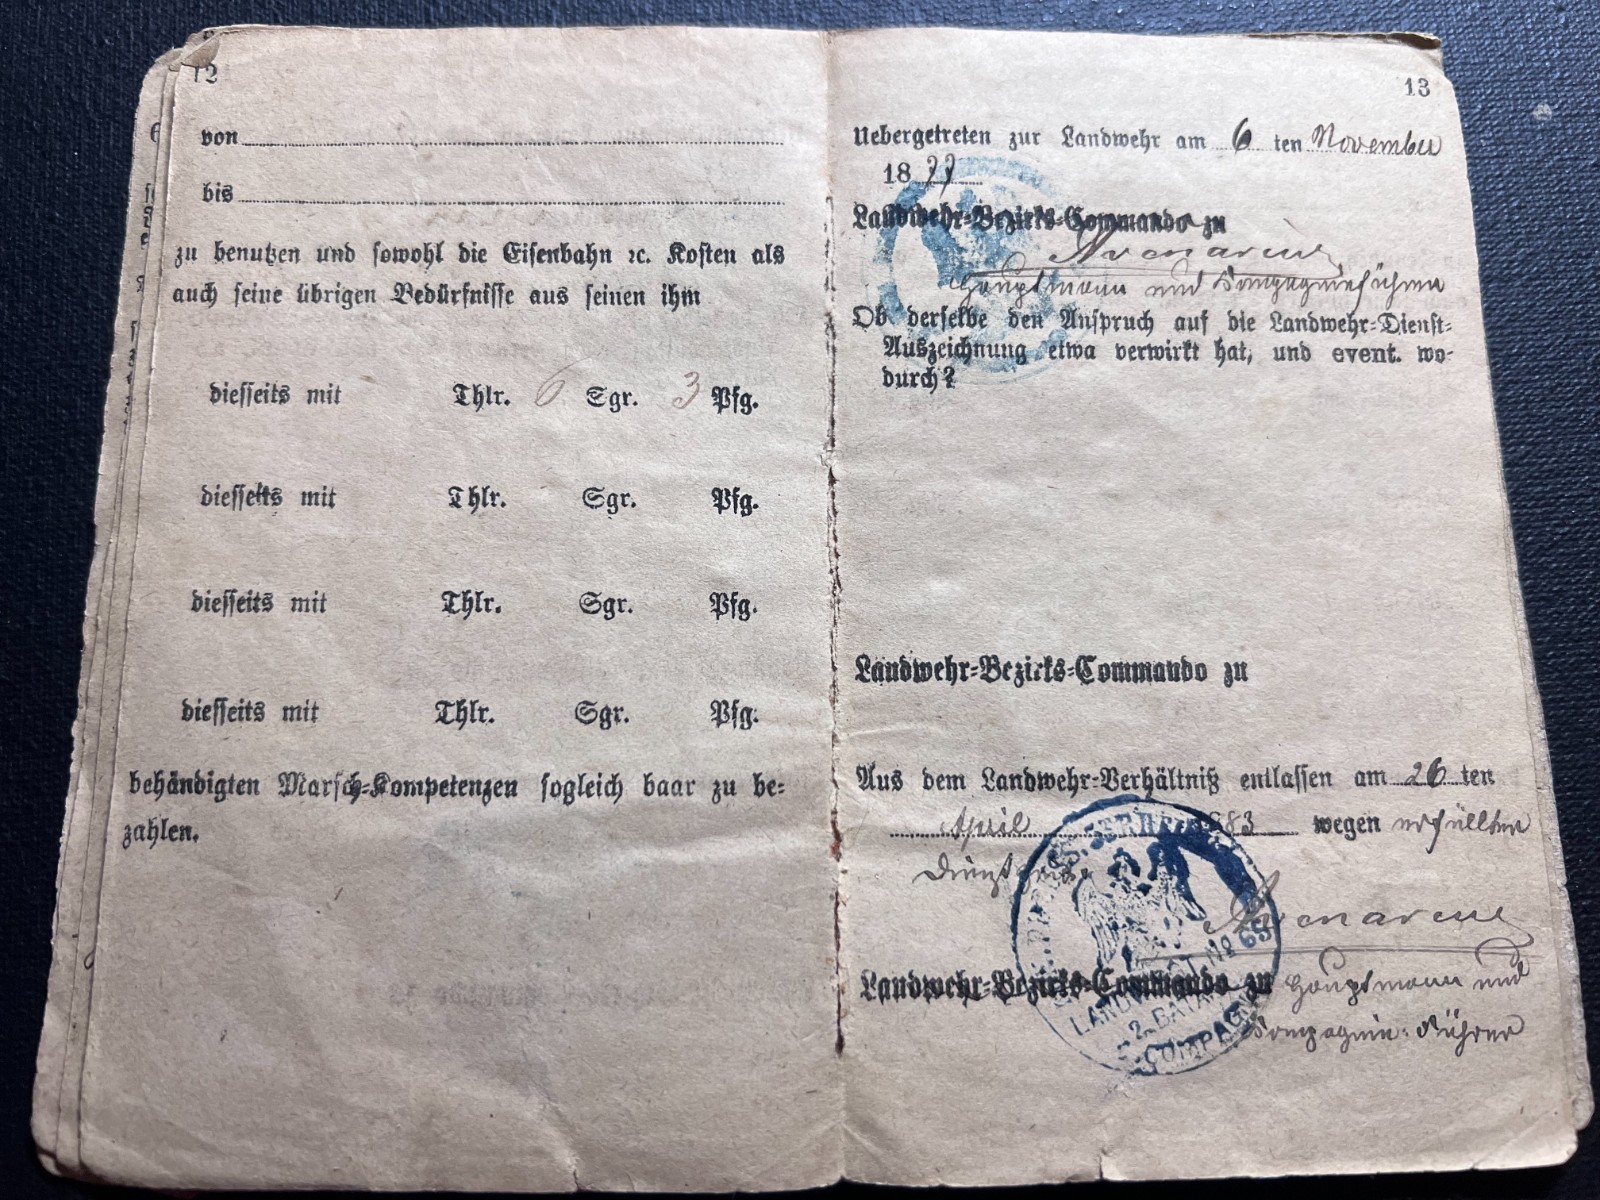 12
von
bis
zu benutzen und sowohl die Eisenbahn ꝛc. Kosten als
auch seine übrigen Bedürfnisse aus seinen ihm
diesseits mit Thlr. 6 Sgr. 3 Pfg.
diesseits mit Thlr. Sgr. Pfg.
diesseits mit Thlr. Sgr. Pfg.
diesseits mit Thlr. Sgr. Pfg.
behändigten Marsch-Kompetenzen sogleich baar zu be-
zahlen.
13
Uebergetreten zur Landwehr am 6 ten November
1877
Landwehr-Bezirks-Commando zu
Avenarius
Hauptmann und Kompagnieführer
Ob derselbe den Anspruch auf die Landwehr-Dienst-
Auszeichnung etwa verwirkt hat, und event. wo-
durch?
Landwehr-Bezirks-Commando zu
Aus dem Landwehr-Verhältniß entlassen am 26 ten
April 1883 wegen erfüllter
Dienstzeit.
Avenarius
Landwehr-Bezirks-Commando zu Hauptmann und
Kompagnie-Führer
LANDW. No 68
2. BATAILL
COMPAGNIE